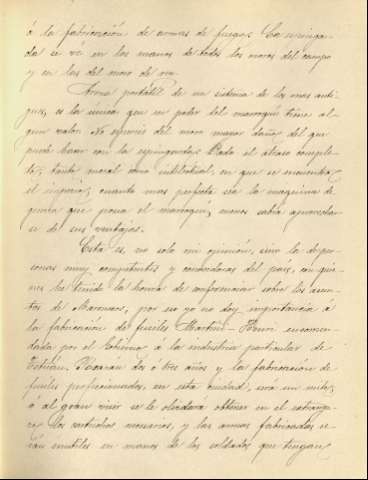 á la fabricación de armas de fuego. La espinga-
da se ve en las manos de todos los moros del campo
y en las del moro de rey.
Arma portátil de un sistema de los mas anti-
guos, es la única que en poder del marroquí tiene al-
gun valor. No esperéis del moro mayor daño, del que
puede hacer con la espingarda. Dado el atraso comple-
to, tanto moral como intelectual, en que se encuentra
el imperio, cuanto mas perfecta sea la maquina de
guerra que posea el marroquí, menos sabrá aprovechar-
se de sus ventajas.
Esta es, no solo mi opinión, sino la de per-
sonas muy competentes y conocedoras del país, con quie-
nes he tenido la honra de conferenciar sobre los asun-
tos de Marruecos, por eso yo no doy importancia á
la fabricación de fusiles Martini-Henri encomen-
dada por el Sultan á la industria particular de
Tetuán. Pasarán dos ó tres años y la fabricación de
fusiles perfeccionados, en esta ciudad, será un mito,
ó al gran visir se le olvidará obtener en el extrange-
ro los cartuchos necesarios, y las armas fabricadas se-
rán inutiles en manos de los soldados que tengan